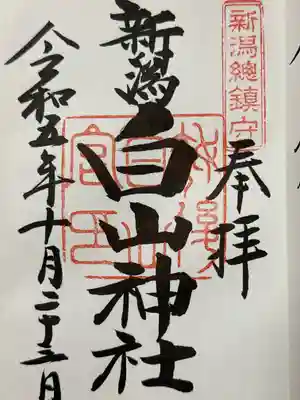 新潟總鎮守
奉拝
新潟白山神社
令和五年十月二十三日